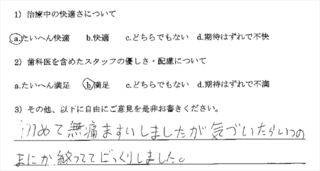 1）治療中の快適さについて
a.たいへん快適　b.快適　c.どちらでもない　d.期待はずれで不快
2）歯科医を含めたスタッフの優しさ・配慮について
a.たいへん満足　b.満足　c.どちらでもない　d.期待はずれで不満
3）その他、以下に自由にご意見を是非お書きください。
初めて無痛ますいしましたが気づいたらいつの
まにか終っててびっくりしました。